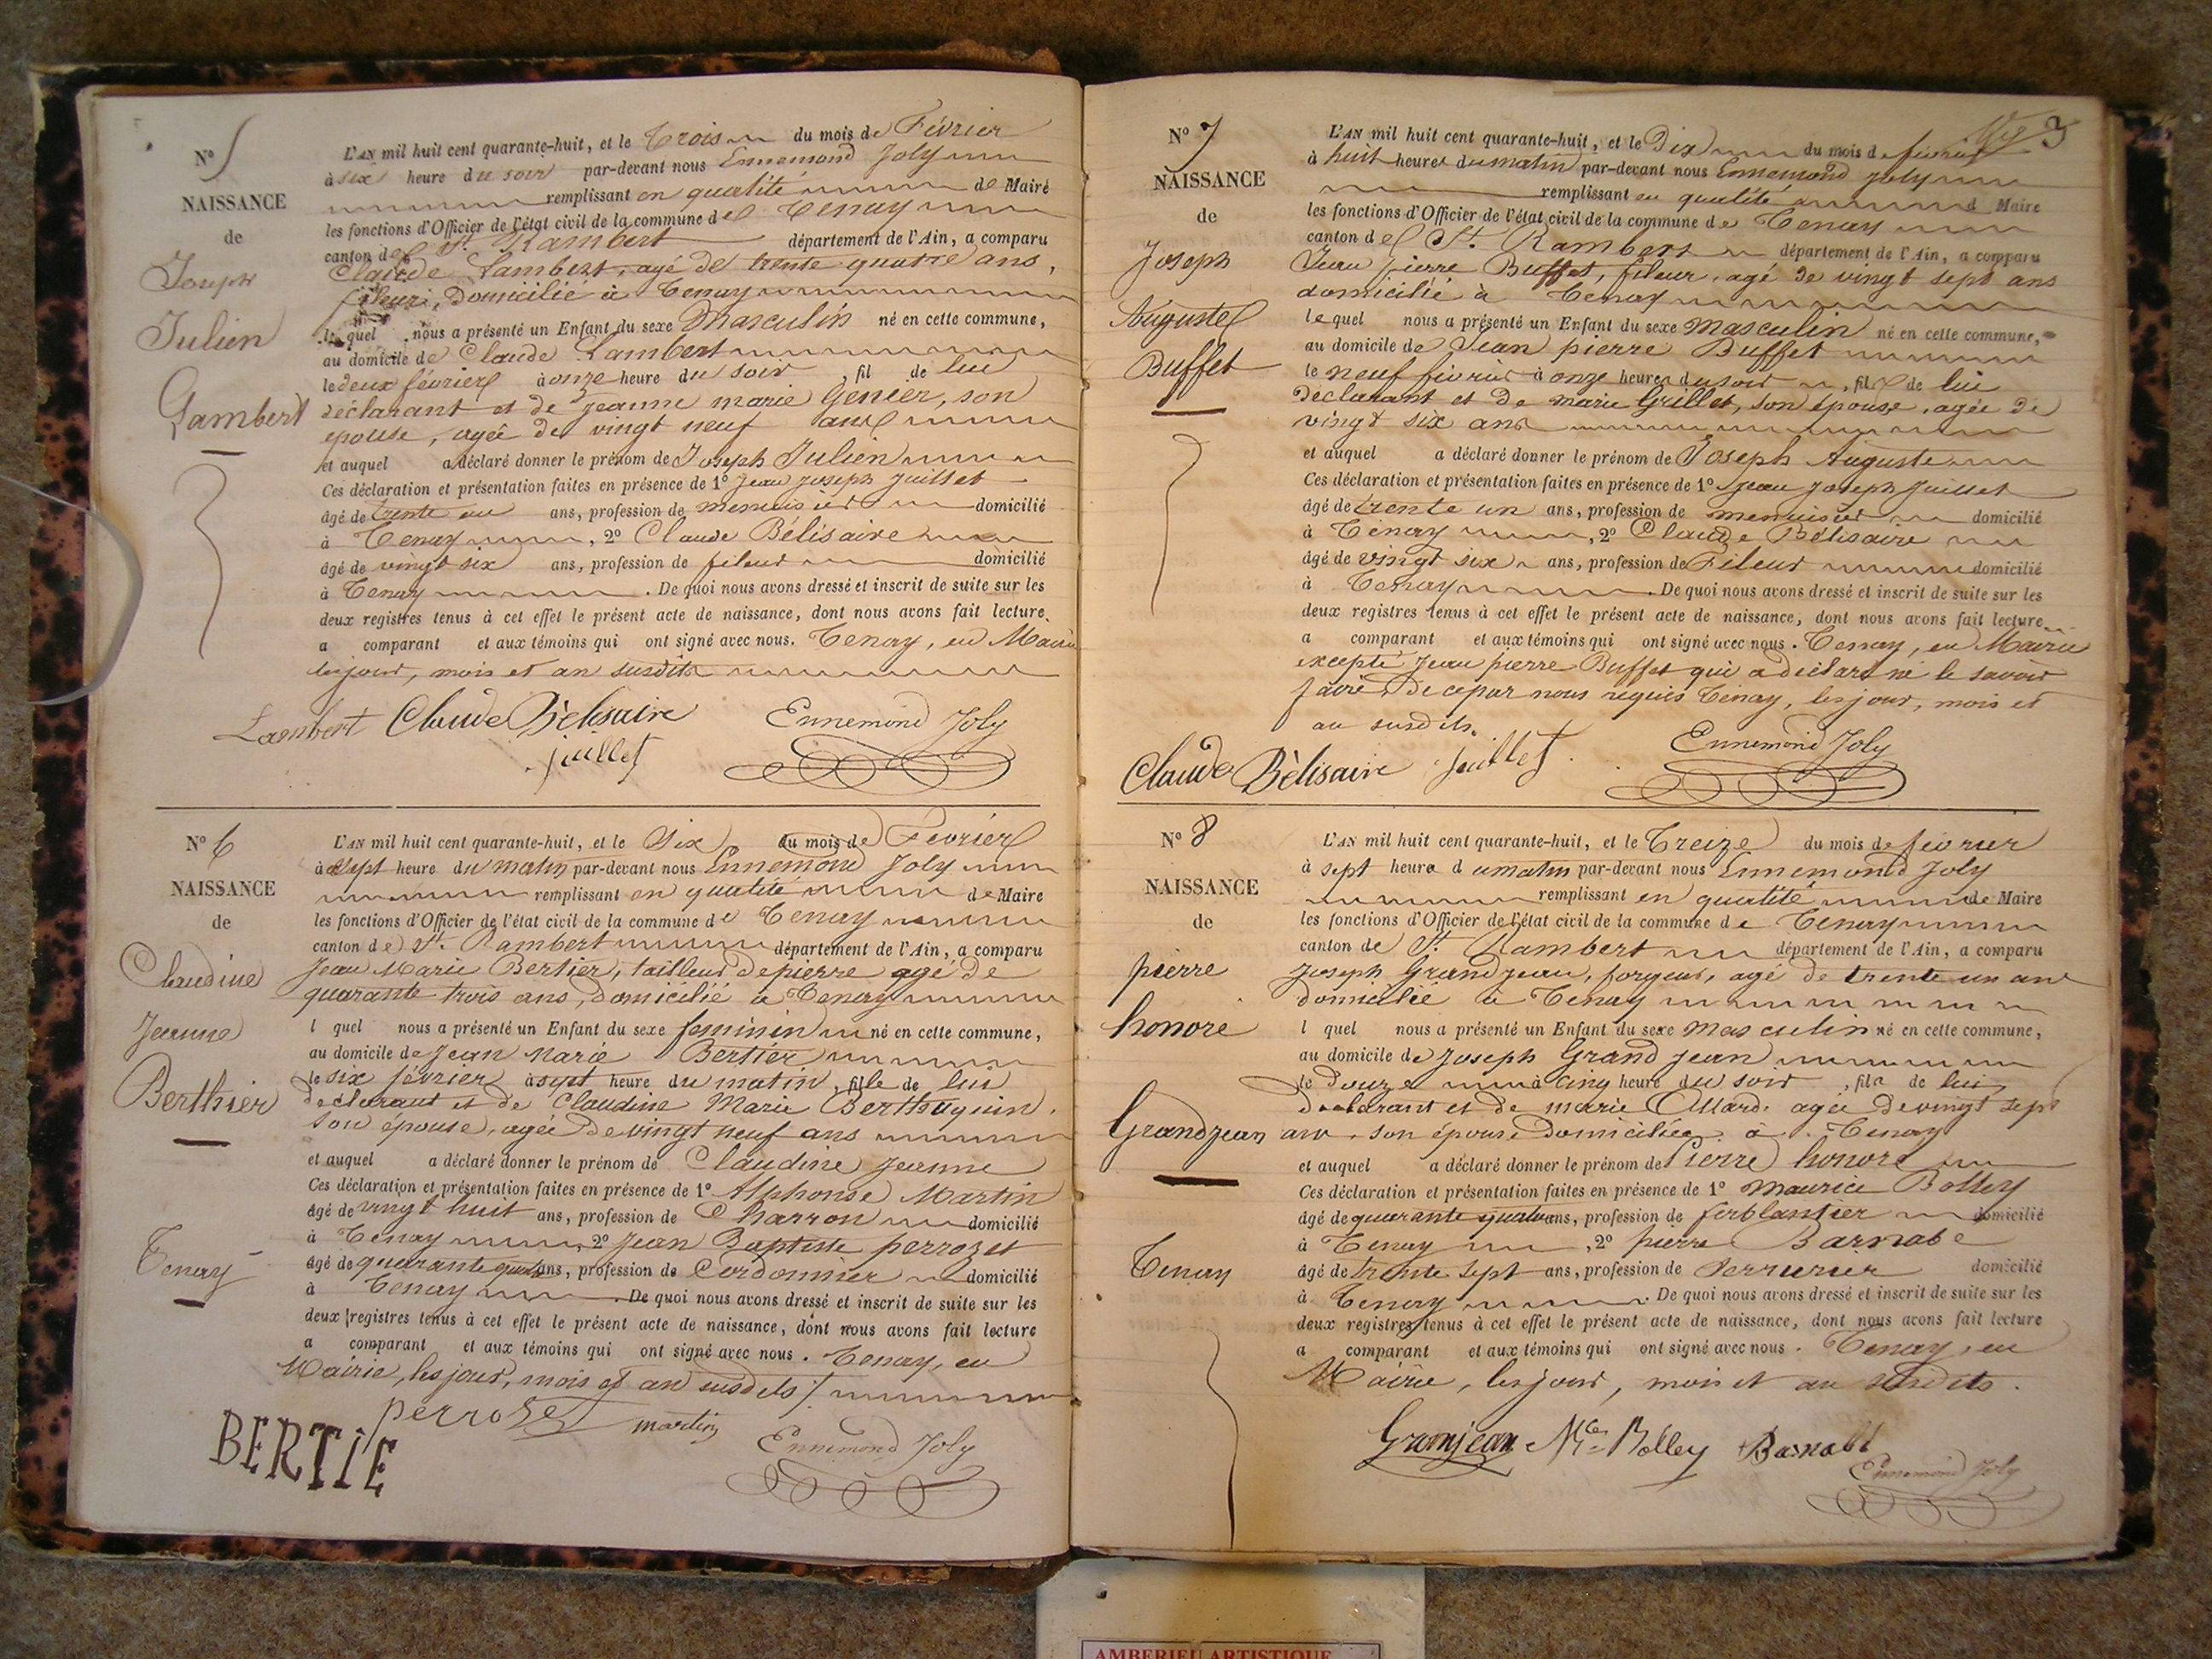 N° 5
NAISSANCE
de
Joseph
Julien
Lambert
L'AN mil huit cent quarante-huit, et le Trois du mois de Février
à six heure du soir par-devant nous Ennemond Joly
remplissant en qualité de Maire
les fonctions d'Officier de l'état civil de la commune de Tenay
canton de St. Rambert département de l'Ain, a comparu
Claude Lambert, agé de trente quatre ans,
fileur, domicilié à Tenay
lequel nous a présenté un Enfant du sexe Masculin né en cette commune,
au domicile de Claude Lambert
le deux février à onze heure du soir, fil de lui
déclarant et de Jeanne marie Genier, son
epouse, agée de vingt neuf ans
et auquel a déclaré donner le prénom de Joseph Julien
Ces déclaration et présentation faites en présence de 1° Jean Joseph Juillet
âgé de trente un ans, profession de menuisier domicilié
à Tenay, 2° Claude Bélisaire
âgé de vingt six ans, profession de fileur domicilié
à Tenay. De quoi nous avons dressé et inscrit de suite sur les
deux registres tenus à cet effet le présent acte de naissance, dont nous avons fait lecture
a comparant et aux témoins qui ont signé avec nous. Tenay, en Mairie
les jour, mois et an susdits
Lambert Claude Bèlisaire Ennemond Joly
juillet
N° 6
NAISSANCE
de
Claudine
Jeanne
Berthier
Tenay
L'AN mil huit cent quarante-huit, et le Six du mois de Février
à sept heure du matin par-devant nous Ennemond Joly
remplissant en qualité de Maire
les fonctions d'Officier de l'état civil de la commune de Tenay
canton de St. Rambert département de l'Ain, a comparu
Jean Marie Bertier, tailleur de pierre agé de
quarante trois ans, domicilié à Tenay
l quel nous a présenté un Enfant du sexe feminin né en cette commune,
au domicile de Jean Marie Bertier
le six février à sept heure du matin, file de lui
declarant et de Claudine Marie Berthuguin,
son épouse, agée de vingt neuf ans
et auquel a déclaré donner le prénom de Claudine Jeanne
Ces déclaration et présentation faites en présence de 1° Alphonse Martin
âgé de vingt huit ans, profession de Charron domicilié
à Tenay, 2° Jean Baptiste perrozet
âgé de quarante ans, profession de Cordonnier domicilié
à Tenay. De quoi nous avons dressé et inscrit de suite sur les
deux registres tenus à cet effet le présent acte de naissance, dont nous avons fait lecture
a comparant et aux témoins qui ont signé avec nous. Tenay, en
Mairie, les jour, mois et an susdits
perrozet martin Ennemond Joly
BERTIE
3
N° 7
NAISSANCE
de
Joseph
Auguste
Buffet
L'AN mil huit cent quarante-huit, et le Dix du mois de février
à huit heures du matin par-devant nous Ennemond Joly
remplissant en qualité d Maire
les fonctions d'Officier de l'état civil de la commune de Tenay
canton de St. Rambert département de l'Ain, a comparu
Jean pierre Buffet, fileur, agé de vingt sept ans
domicilié à Tenay
lequel nous a présenté un Enfant du sexe masculin né en cette commune,
au domicile de Jean pierre Buffet
le neuf février à onze heures du soir, fils de lui
déclarant et de marie Grillet, son épouse, agée de
vingt six ans
et auquel a déclaré donner le prénom de Joseph Auguste
Ces déclaration et présentation faites en présence de 1° Jean Joseph Juillet
âgé de trente un ans, profession de menuisier domicilié
à Tenay, 2° Claude Bélisaire
âgé de vingt six ans, profession de Fileur domicilié
à Tenay. De quoi nous avons dressé et inscrit de suite sur les
deux registres tenus à cet effet le présent acte de naissance, dont nous avons fait lecture
a comparant et aux témoins qui ont signé avec nous. Tenay, en Mairie
excepté Jean pierre Buffet qui a déclaré ne le savoir
faire de ce par nous requis Tenay, les jour, mois et
an susdits.
Claude Bèlisaire juillet Ennemond Joly
N° 8
NAISSANCE
de
pierre
honore
Grandjean
Tenay
L'AN mil huit cent quarante-huit, et le Treize du mois de février
à sept heure du matin par-devant nous Ennemond Joly
remplissant en qualité de Maire
les fonctions d'Officier de l'état civil de la commune de Tenay
canton de St. Rambert département de l'Ain, a comparu
Joseph Grandjean, forgeur, agé de trente un ans
domicilié à Tenay
l quel nous a présenté un Enfant du sexe masculin né en cette commune,
au domicile de Joseph Grand jean
le douze à cinq heure du soir, fils de lui
declarant et de marie Allard, agée de vingt sept
ans, son épouse domiciliée à Tenay
et auquel a déclaré donner le prénom de Pierre honore
Ces déclaration et présentation faites en présence de 1° maurice Bolley
âgé de quarante quatre ans, profession de ferblantier domicilié
à Tenay, 2° pierre Barnabe
âgé de trente sept ans, profession de Serrurier domicilié
à Tenay. De quoi nous avons dressé et inscrit de suite sur les
deux registres tenus à cet effet le présent acte de naissance, dont nous avons fait lecture
a comparant et aux témoins qui ont signé avec nous. Tenay, en
Mairie, les jour, mois et an susdits.
Granjean Mce Bolley Barnabé
Ennemond Joly
AMBERIEU ARTISTIQUE